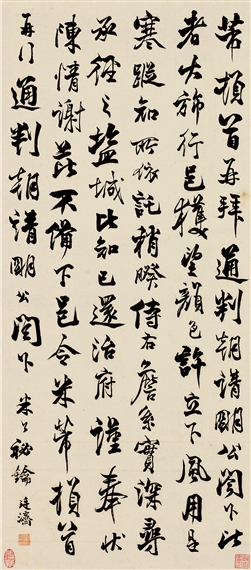 芾頓首再拜通判朝請明公閤下比
者大旆行邑獲望顏色許立下風用是
寒蹤知所依託稍睽侍右詹系實深尋
承徑之鹽城比知已還治府謹奉狀
陳情謝茲不備下邑令米芾頓首
再行通判朝請明公閤下 米 秘 廷濟